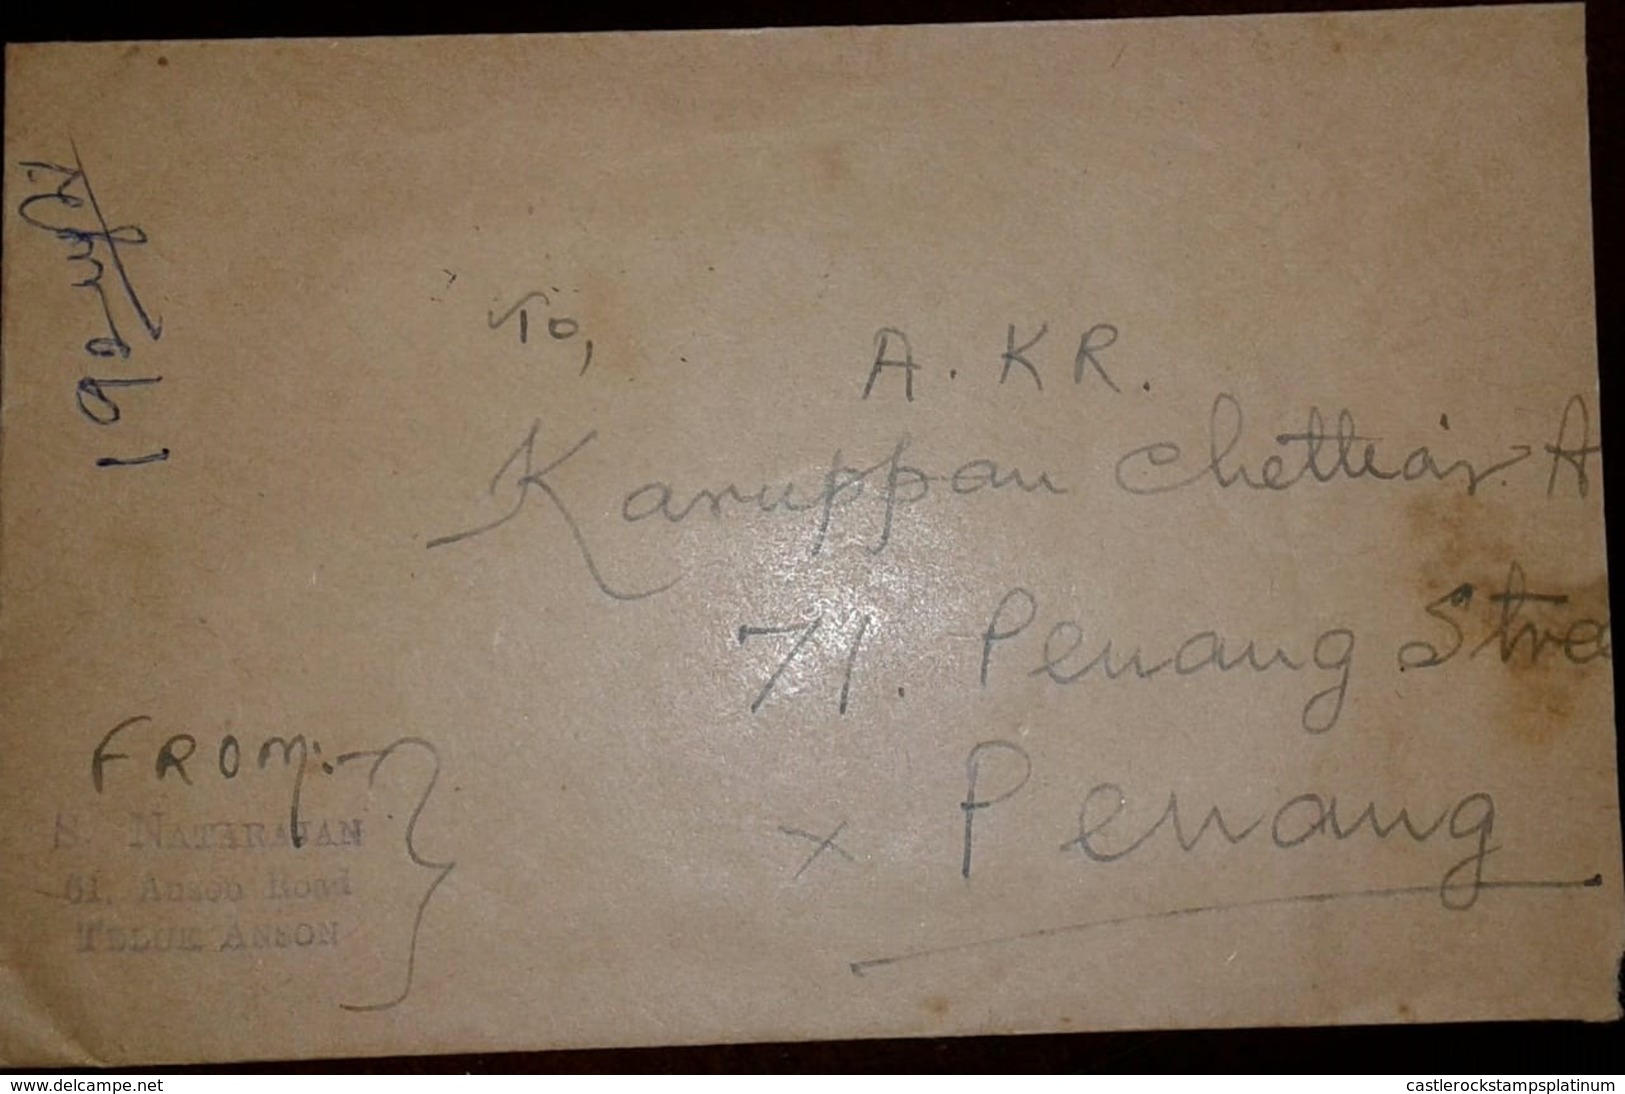 To,
A. KR.
Karuppan Chettiar. A
71. Penang Stree
Penang
FROM:-
S. NATARAJAN
61, Anson Road
TELUK ANSON
www.delcampe.net
castlerockstampsplatinum